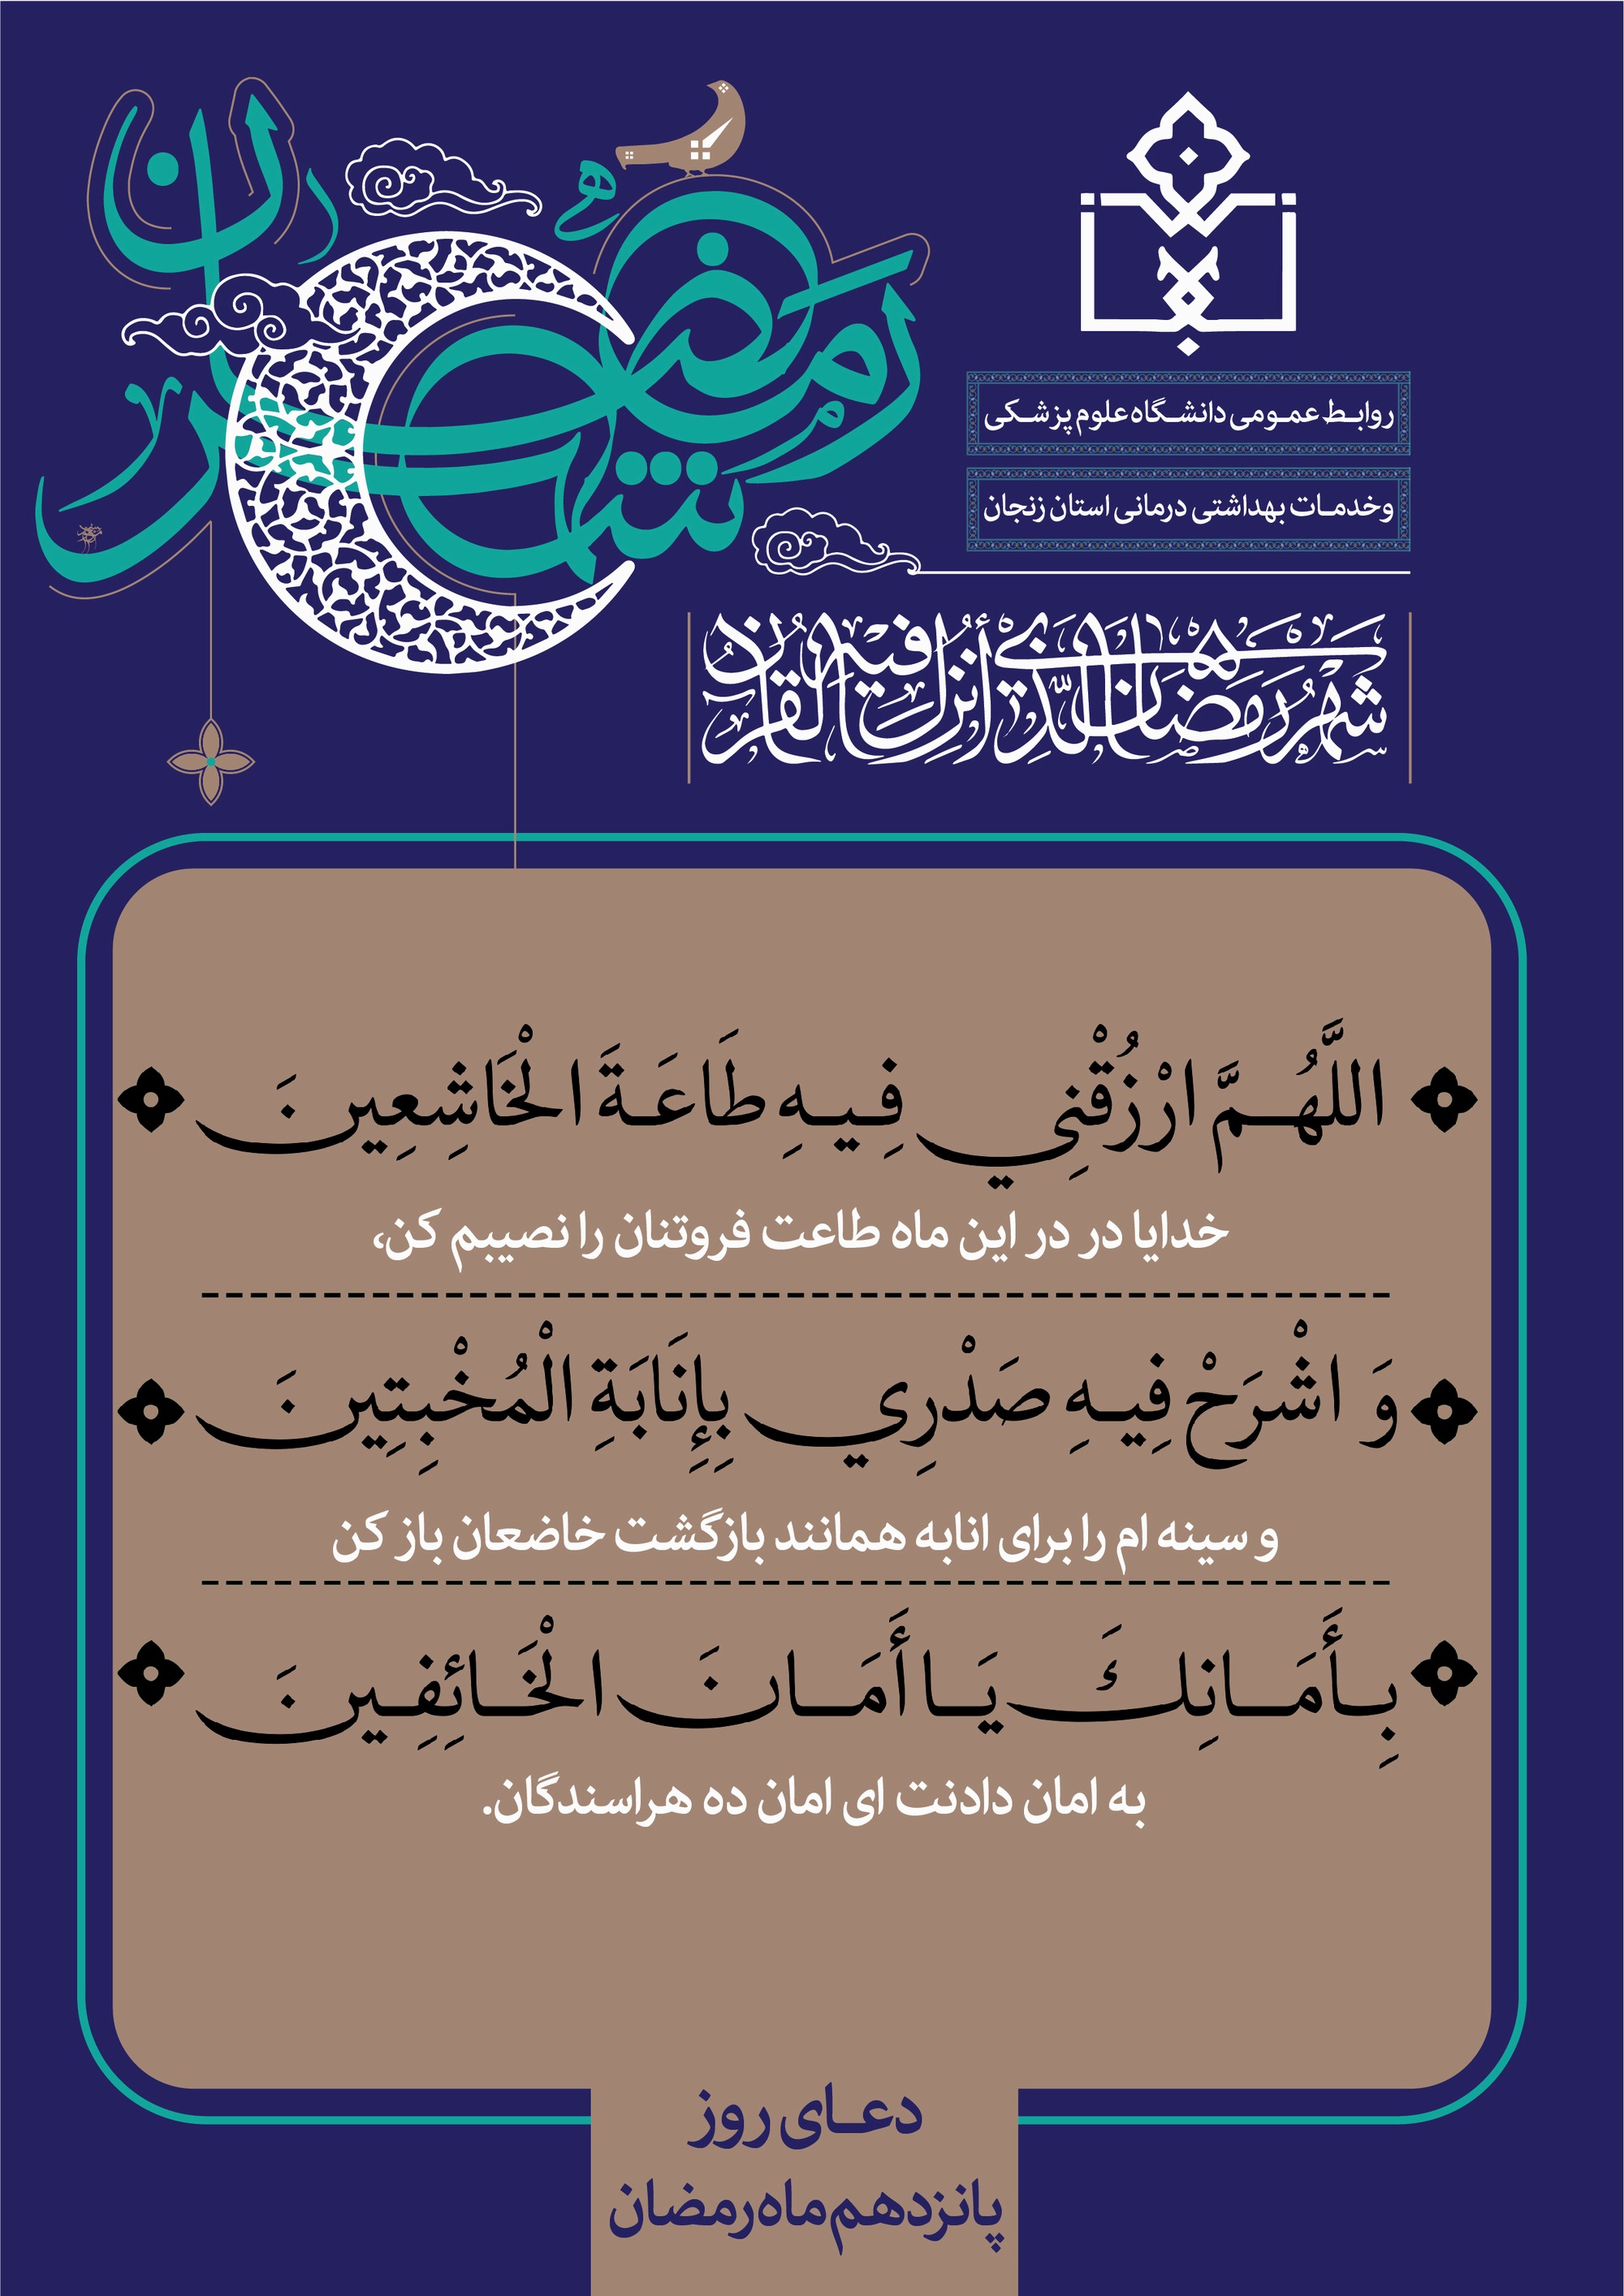 شهر رمضان
روابط عمومی دانشگاه علوم پزشکی
وخدمات بهداشتی درمانی استان زنجان
شهر رمضان الذي أنزل فيه القرآن
اللَّهُمَّ ارْزُقْنِي فِيهِ طَاعَةَ الْخَاشِعِينَ
خدایا در در این ماه طاعت فروتنان را نصیبم کن،
وَ اشْرَحْ فِيهِ صَدْرِي بِإِنَابَةِ الْمُخْبِتِينَ
و سینه ام را برای انابه همانند بازگشت خاضعان باز کن
بِأَمَانِكَ يَا أَمَانَ الْخَائِفِينَ
به امان دادنت ای امان ده هراسندگان.
دعای روز
پانزدهم ماه رمضان